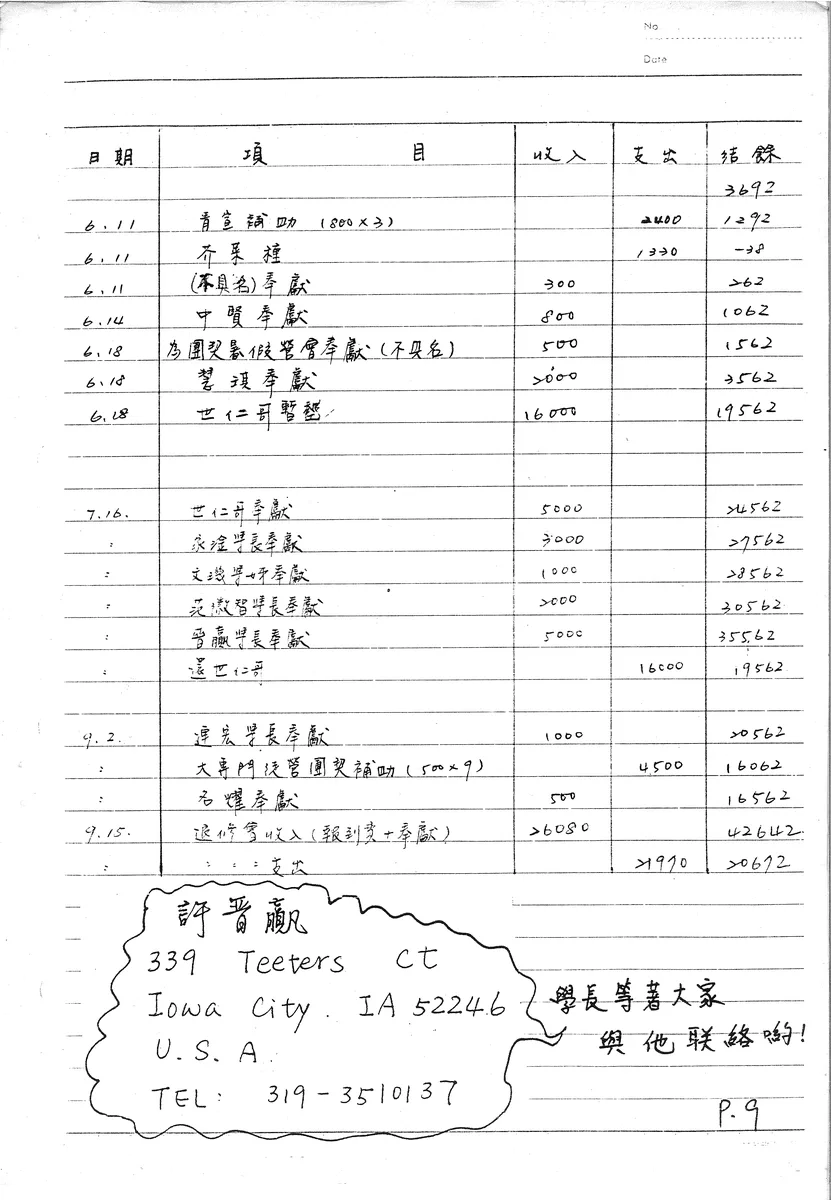 No
Date
日期 項目 收入 支出 結餘
3692
6.11 青宣補助 (800×3) 2400 1292
6.11 芥菜種 1330 -38
6.11 (不具名)奉獻 300 262
6.14 中賢奉獻 800 1062
6.18 為團契暑假營會奉獻(不具名) 500 1562
6.18 慧琪奉獻 2000 3562
6.18 世仁哥暫墊 16000 19562
7.16. 世仁哥奉獻 5000 24562
: 永淦學長奉獻 3000 27562
: 文 學姊奉獻 1000 28562
: 范徵智學長奉獻 2000 30562
: 晉贏學長奉獻 5000 35562
: 還世仁哥 16000 19562
9.2. 連宏學長奉獻 1000 20562
: 大專門徒營團契補助(500×9) 4500 16062
: 名耀奉獻 500 16562
9.15. 退修會收入(報到費+奉獻) 26080 42642
: : : : 支出 21970 20672
許晉贏
339 Teeters Ct
Iowa City. IA 52246
U.S.A.
TEL: 319-3510137
學長等著大家
與他联絡喲!
P.9